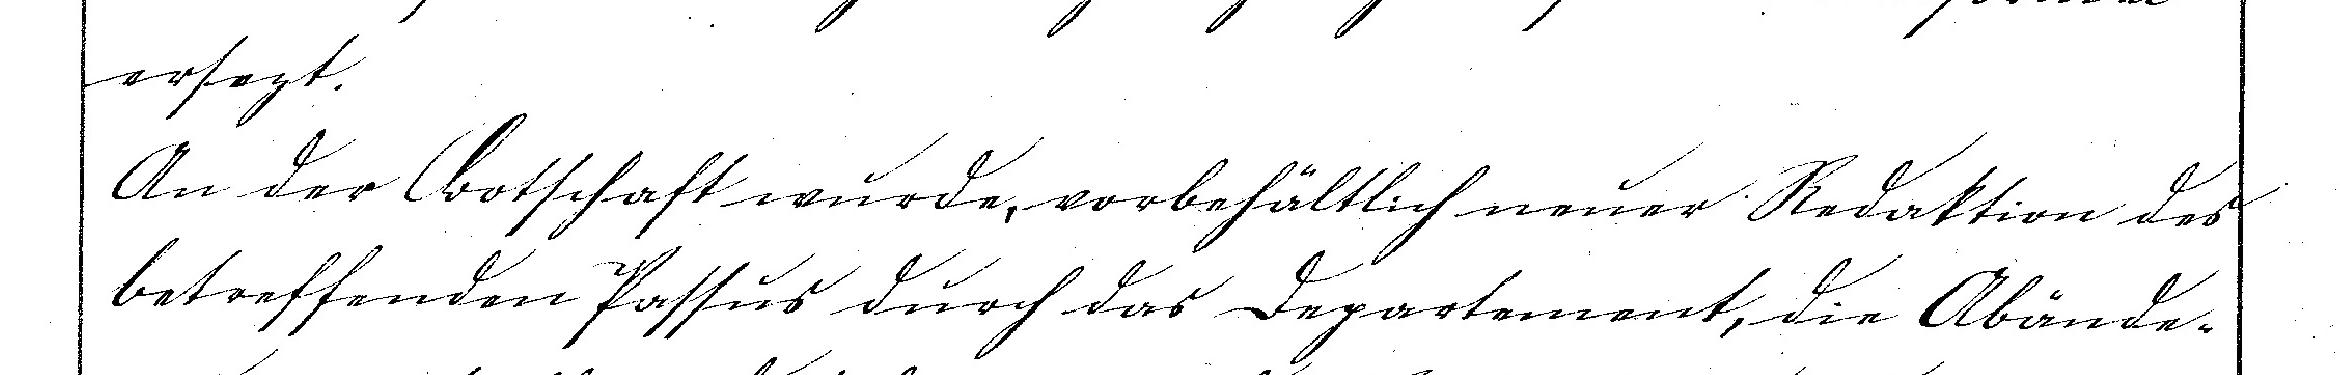 ersezt.
An der Botschaft wurde, vorbehältlich neuer Redaktion des
betreffenden Passus durch das Departement, die Abände-